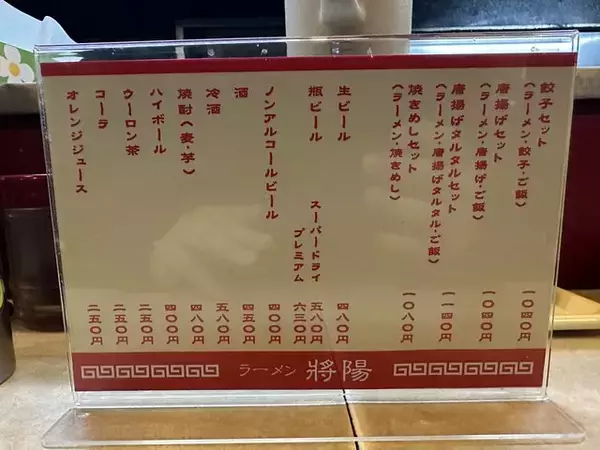 餃子セット 一〇四〇円
（ラーメン・餃子・ご飯）
唐揚げセット 一〇四〇円
（ラーメン・唐揚げ・ご飯）
唐揚げタルタルセット 一一四〇円
（ラーメン・唐揚げタルタル・ご飯）
焼きめしセット 一〇八〇円
（ラーメン・焼きめし）
生ビール 四八〇円
瓶ビール スーパードライ 五八〇円
プレミアム 六三〇円
ノンアルコールビール 四〇〇円
酒 四五〇円
冷酒 五八〇円
焼酎（麦・芋） 四八〇円
ハイボール 四〇〇円
ウーロン茶 二五〇円
コーラ 二五〇円
オレンジジュース 二五〇円
ラーメン 將陽